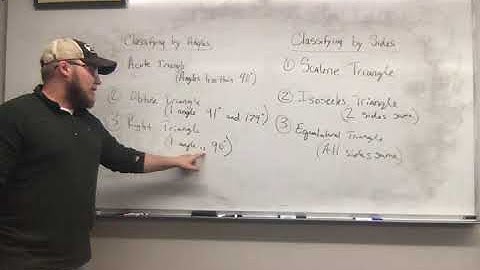 Classifying by Angles
Acute Triangle
(Angles less than 90°)
② Obtuse Triangle
(1 angle 91° and 179°)
③ Right Triangle
(1 angle is 90°)
Classifying by Sides
① Scalene Triangle
② Isosceles Triangle
(2 sides same)
③ Equilateral Triangle
(All sides same)